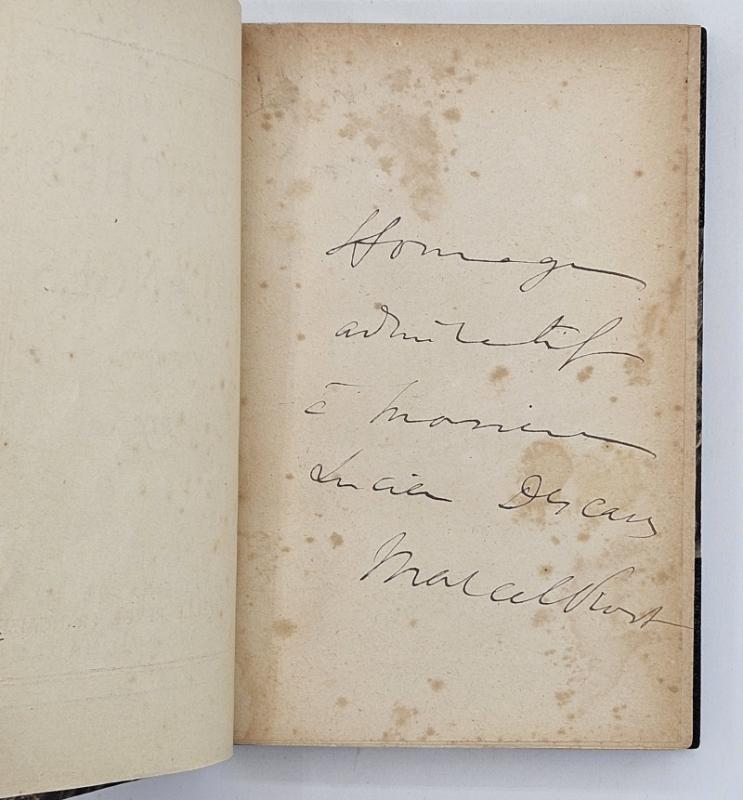 Hommage
admiratif
à Monsieur
Lucien Descaves
Marcel Proust